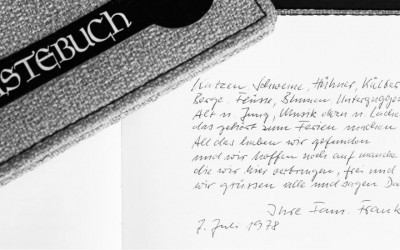 ÄSTEBUCH
Katzen, Schweine, Hühner, Kälber
Berge, Flüsse, Blumen,
Alt u. Jung, Musik dazu u.
das gehört zum Ferien machen
All das haben wir gefunden
und wir hoffen noch auf manche
die wir hier verbringen, frei und
wir grüssen alle und sagen Da
Ihre Fam. Frank
7. Juli 1978